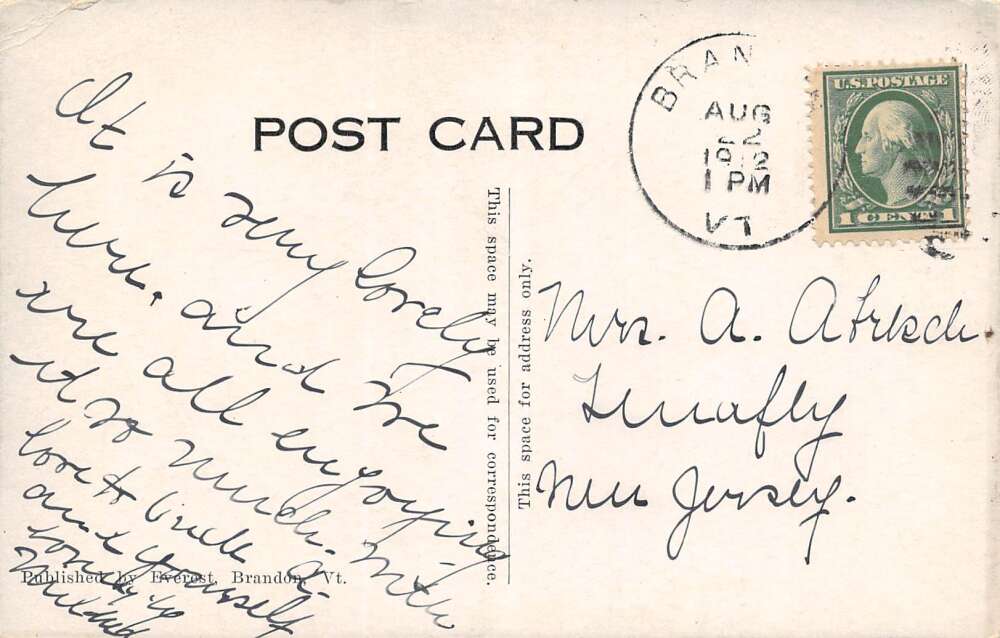 POST CARD
BRAN
AUG
22
1912
1 PM
VT
U.S. POSTAGE
1 CENT 1
It
is very lovely
here, and we
are all enjoying
it so much. With
love to Uncle A.
and yourself
This space may be used for correspondence.
This space for address only.
Mrs. A.
Tenafly
New Jersey.
Published by Everest, Brandon, Vt.